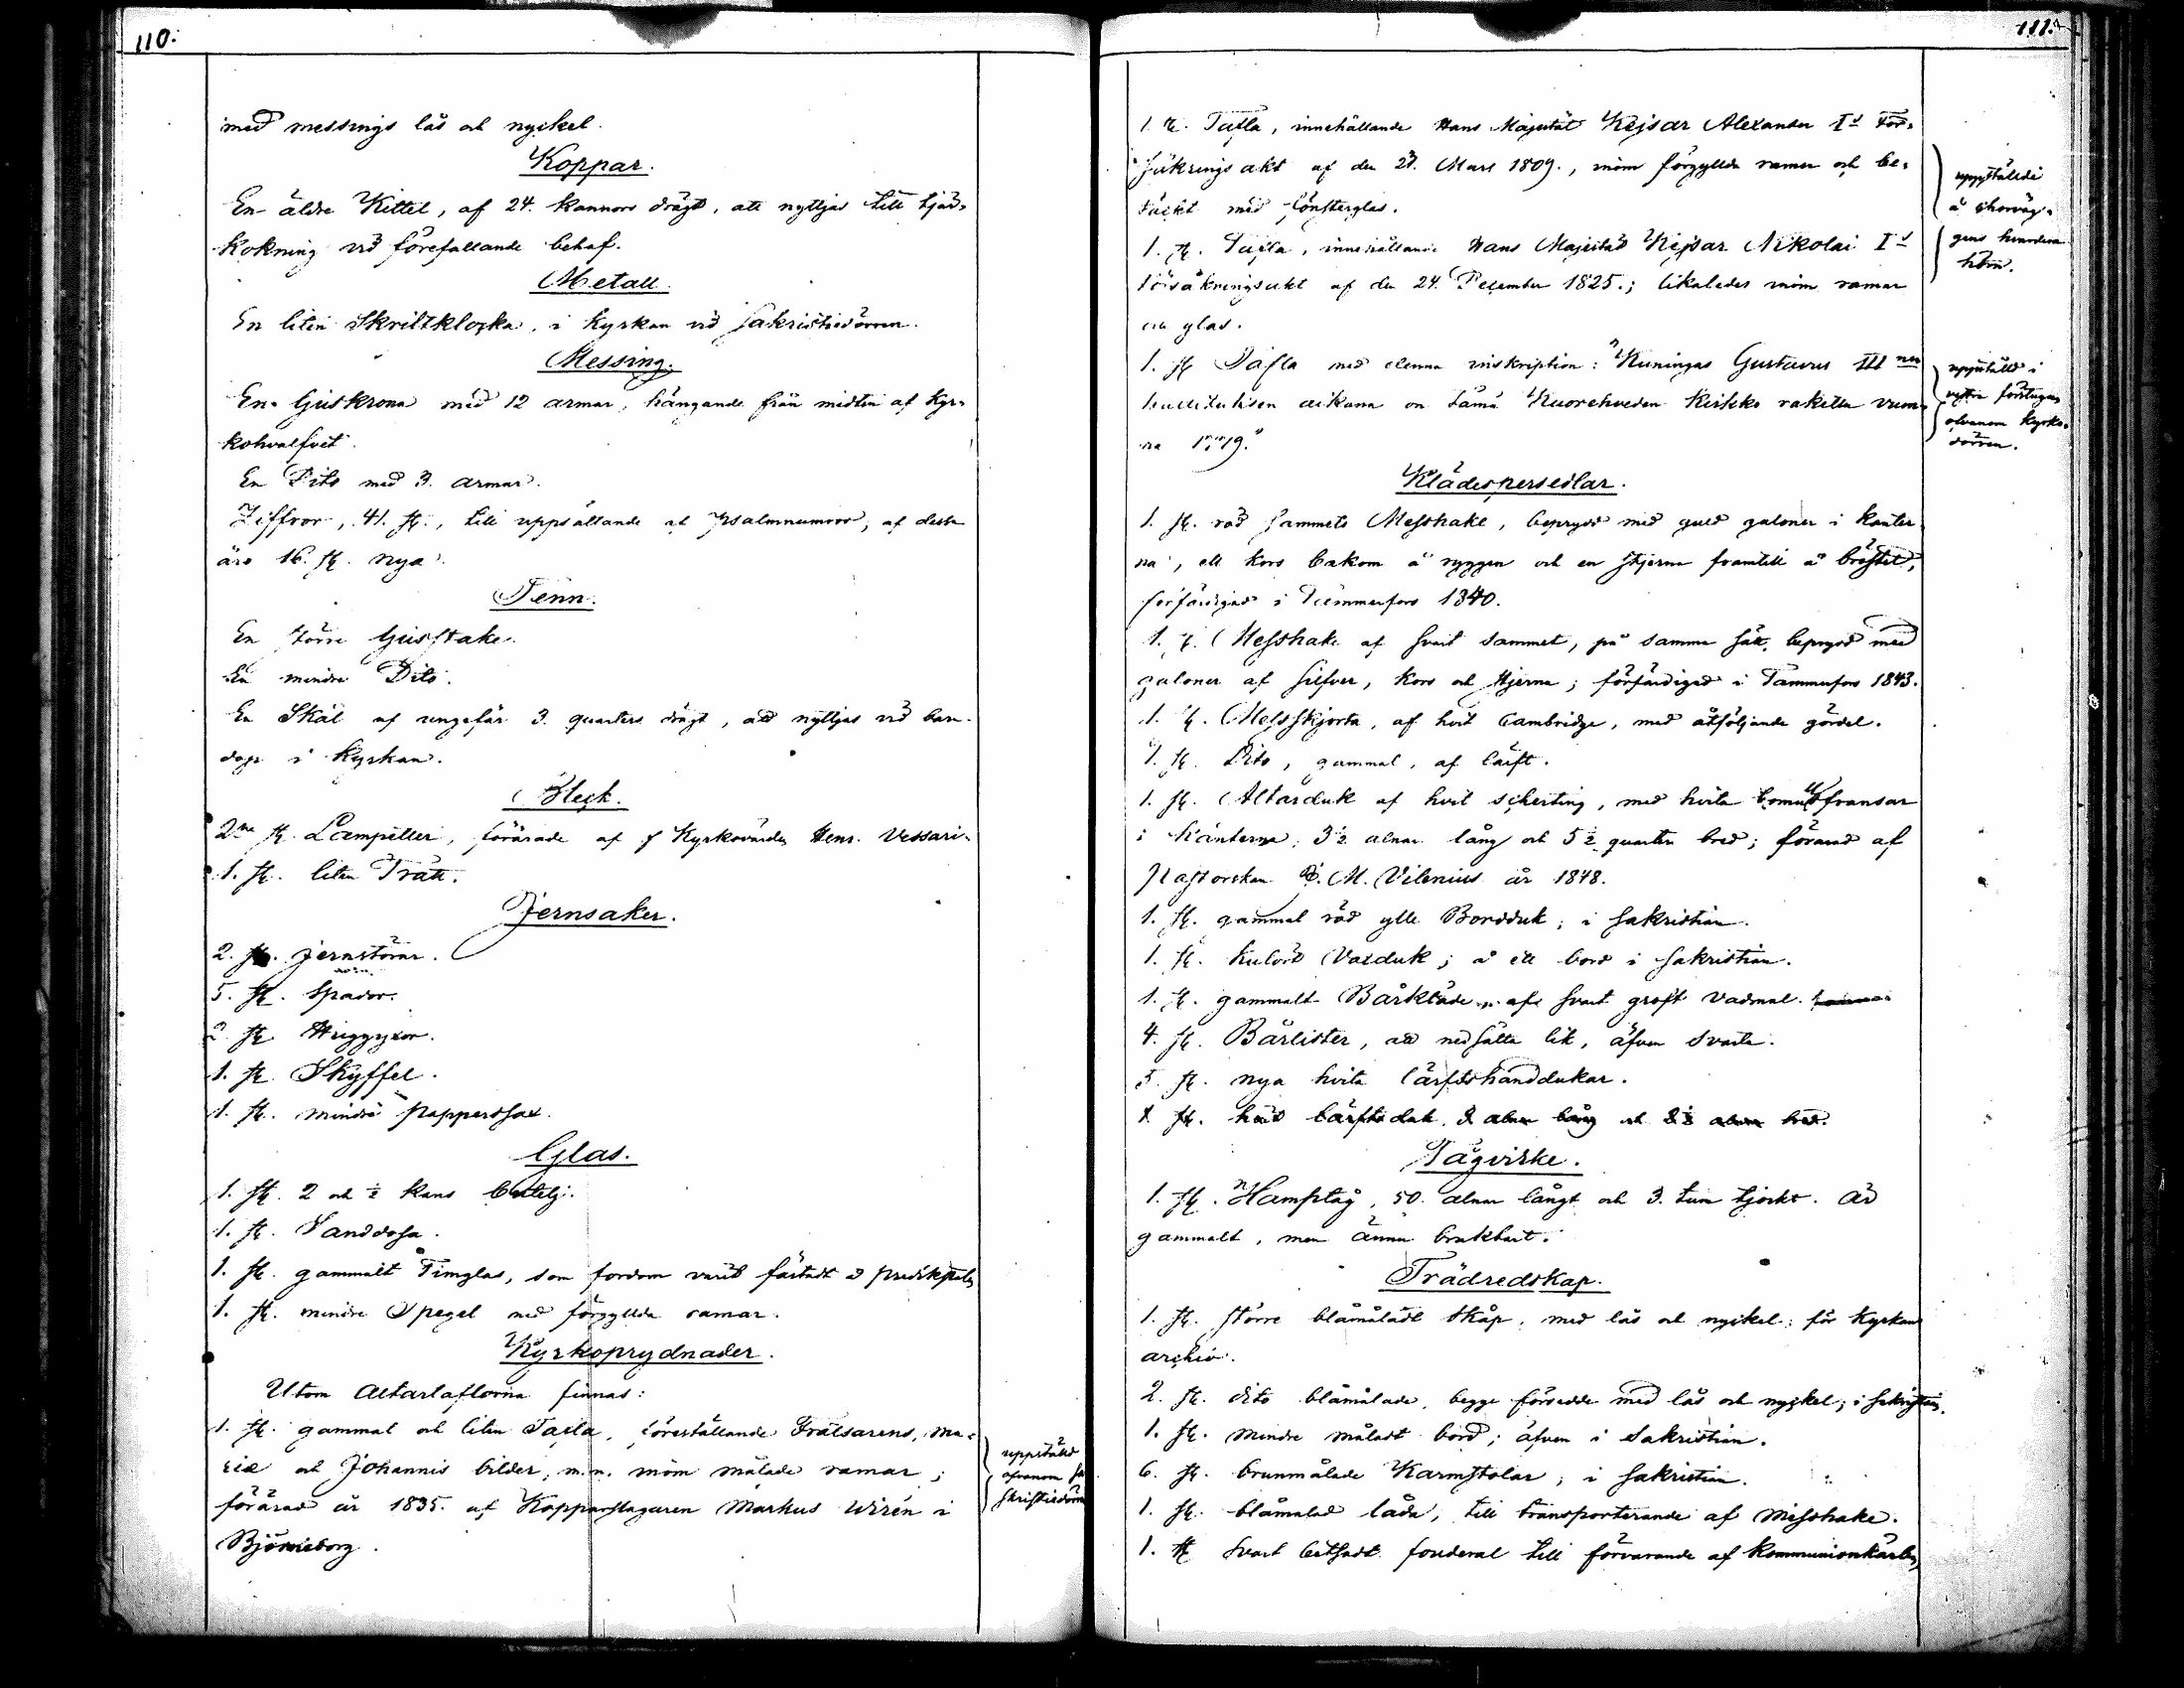 110.
med messings lås och nyckel.
Koppar.
En äldre Kittel, af 24. kannors drägt, att nyttjas till tjär-
kokning vid förefallande behof.
Metall.
En liten Skriftklocka, i kyrkan vid sakristiedörren.
Messing.
En Ljuskrona med 12 armar, hängande från midten af kyr-
kohvalfvet.
En Dito med 3. armar.
Ziffror, 41. st., till uppsättande af psalmnumror, af dessa
äro 16. st. nya.
Tenn.
En större Ljusstake.
En mindre Dito.
En Skål af ungefär 3. quarters drägt, att nyttjas vid barn-
dop i kyrkan.
Bleck.
2ne st. Lampetter, förärade af f Kyrkovärden Henr. Vessari.
1. st. liten Tratt.
Jernsaker.
2. st. jernstörar.
5. st. Spador.
2. st. Huggyxor.
1. st. Skyffel.
1. st. mindre papperssax.
Glas.
1. st. 2 och ½ kans butelj.
1. st. Sanddosa.
1. st. gammalt Timglas, som fordom varit fästadt å predikstolen
1. st. mindre Spegel med förgyllda ramar.
Kyrkoprydnader.
Utom Altartaflorna finnas:
1. st. gammal och liten Tafla, föreställande Frälsarens, Ma-
riæ och Johannis bilder, m.m. inom målade ramar;
förärad år 1835. af Kopparslagaren Markus Wirén i
Björneborg.
uppställd
ofvanom sa
kristiedörren
111.
1. st. Tafla, innehållande Hans Majestät Kejsar Alexander Is För-
säkringsakt af den 27. Mars 1809., inom förgyllda ramar och be-
täckt med fönsterglas.
1. st. Tafla, innehållande Hans Majestäts Kejsar Nikolai Is
försäkringsakt af den 24. December 1825.; likaledes inom ramar
och glas.
uppställde
å chorväg-
gens hvardera
hörn.
1. st Tafla med denna inskription: "Kuningas Gustavus III nen
hallituksen aikana on tämä Kuorehveden Kirkko rakettu vuon-
na 1779."
uppställd i
vestra förstugan
ofvanom kyrko-
dörren.
Klädespersedlar.
1. st. röd sammets Messhake, beprydd med guld galoner i kanter-
na, ett kors bakom å ryggen och en stjerna framtill å bröstet,
förfärdigad i Tammerfors 1840.
1. st. Messhake af svart sammet, på samma sätt beprydd med
galoner af silfver, kors och stjerna; förfärdigad i Tammerfors 1843.
1. st. Messskjorta, af hvit Cambridge, med åtföljande gördel.
1. st. Dito, gammal, af lärft.
1. st. Altarduk af hvit scherting, med hvita bomullsfransar
i kanterna, 3½ alnar lång och 5½ quarter bred; förärad af
Pastorskan M. Vilenius år 1848.
1. st. gammal röd ylle Bordduk, i sakristian.
1. st. kulört Vaxduk; å ett bord i sakristian.
1. st. gammalt Bårkläde, af svart groft vadmal.
4. st. Bårlister, att nedsätta lik, äfven svarta.
5. st. nya hvita lärftshanddukar.
1. st. hvit lärfts duk, 2 alnar lång och 2½ alnar bred.
Tågvirke.
1. st. Hamptåg, 50. alnar långt och 3. tum tjockt. Är
gammalt, men ännu brukbart.
Trädredskap.
1. st. större blåmåladt skåp, med lås och nyckel; för kyrkans
archiv.
2. st. dito blåmålade, begge försedde med lås och nyckel; i sakristian.
1. st. mindre måladt bord; äfven i Sakristian.
6. st. brunmålade Karmstolar; i sakristian.
1. st. blåmålad låda, till transporterande af Messhake.
1. st svart betsadt fouderal till förvarande af kommunionkärlen,